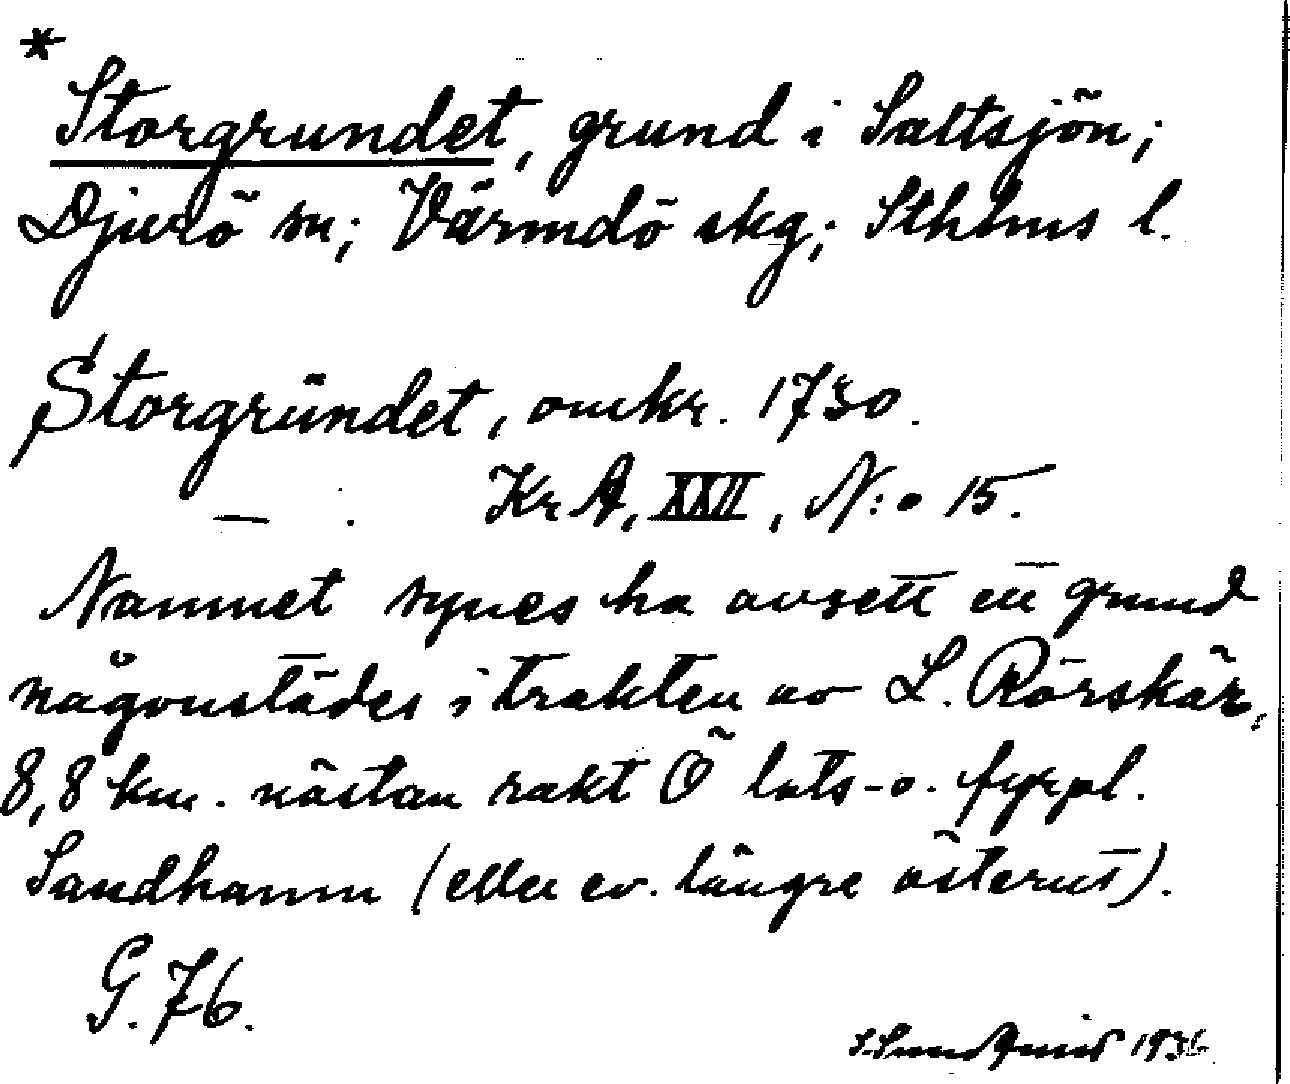 *
Storgrundet, grund i Saltsjön;
Djurö sn; Värmdö skg; Sthlms l.
Storgründet, omkr. 1730.
— . Kr A, XXII, N:o 15.
Namnet synes ha avsett en grund
någonstädes i trakten av L. Rörskär,
8,8 km. nästan rakt Ö lots- o. fyrpl.
Sandhamn (eller ev. längre österut).
G. 76.
S. Sundquist 1936